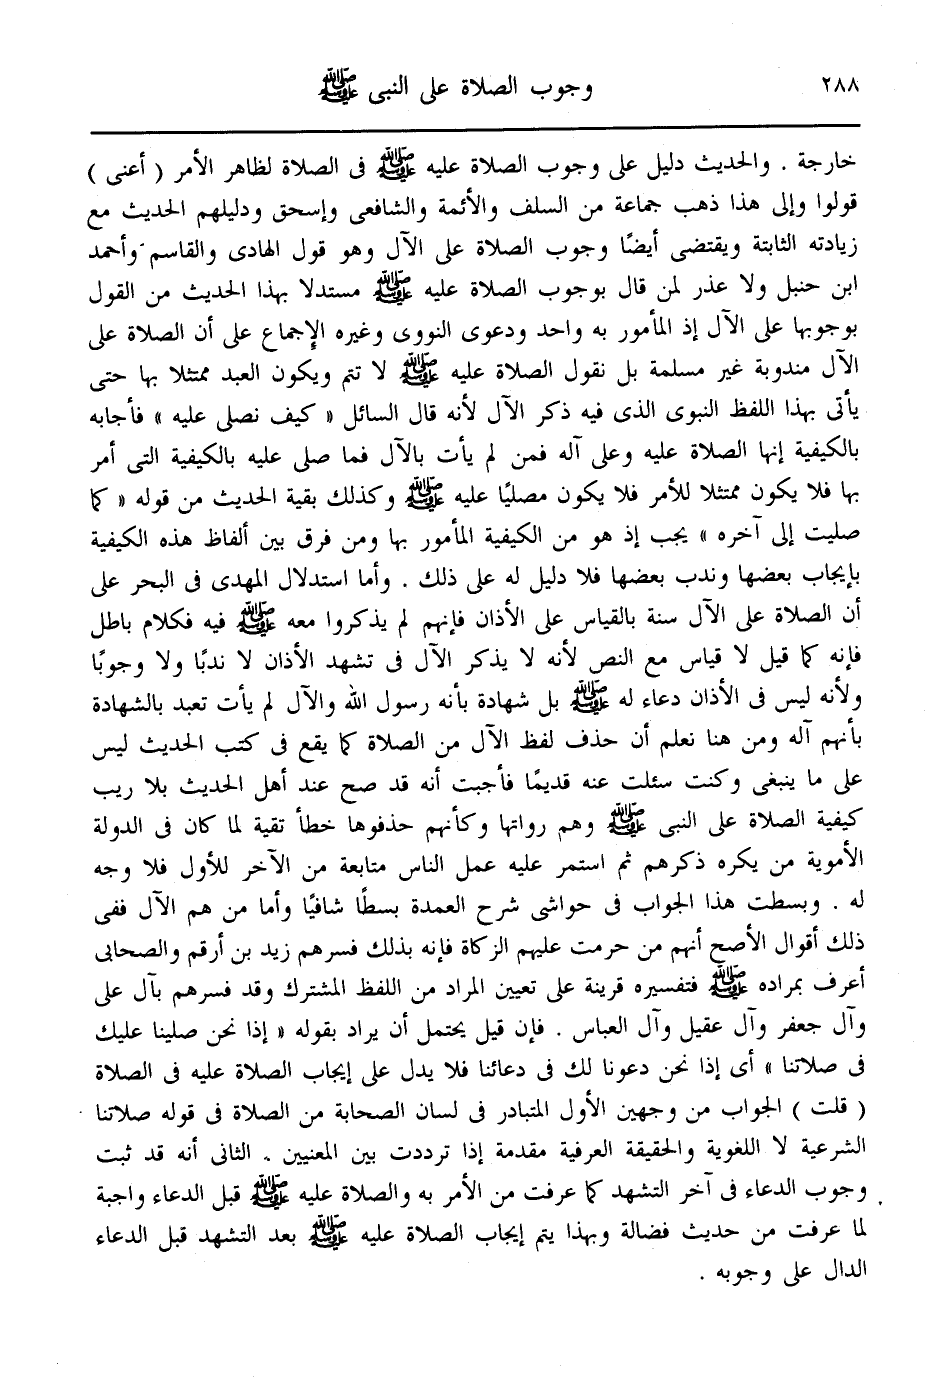 ٢٨٨
وجوب الصلاة على النبى ﷺ
خارجة . والحديث دليل على وجوب الصلاة عليه ﷺ فى الصلاة لظاهر الأمر ( أعنى )
قولوا وإلى هذا ذهب جماعة من السلف والأئمة والشافعى وإسحق ودليلهم الحديث مع
زيادته الثابتة ويقتضى أيضًا وجوب الصلاة على الآل وهو قول الهادى والقاسم وأحمد
ابن حنبل ولا عذر لمن قال بوجوب الصلاة عليه ﷺ مستدلا بهذا الحديث من القول
بوجوبها على الآل إذ المأمور به واحد ودعوى النووى وغيره الإجماع على أن الصلاة على
الآل مندوبة غير مسلمة بل نقول الصلاة عليه ﷺ لا تتم ويكون العبد ممتثلا بها حتى
يأتى بهذا اللفظ النبوى الذى فيه ذكر الآل لأنه قال السائل « كيف نصلى عليه » فأجابه
بالكيفية إنها الصلاة عليه وعلى آله فمن لم يأت بالآل فما صلى عليه بالكيفية التى أمر
بها فلا يكون ممتثلا للأمر فلا يكون مصليًا عليه ﷺ وكذلك بقية الحديث من قوله « كما
صليت إلى آخره » يجب إذ هو من الكيفية المأمور بها ومن فرق بين ألفاظ هذه الكيفية
بإيجاب بعضها وندب بعضها فلا دليل له على ذلك . وأما استدلال المهدى فى البحر على
أن الصلاة على الآل سنة بالقياس على الأذان فإنهم لم يذكروا معه ﷺ فيه فكلام باطل
فإنه كما قيل لا قياس مع النص لأنه لا يذكر الآل فى تشهد الأذان لا ندبًا ولا وجوبًا
ولأنه ليس فى الأذان دعاء له ﷺ بل شهادة بأنه رسول الله والآل لم يأت تعبد بالشهادة
بأنهم آله ومن هنا نعلم أن حذف لفظ الآل من الصلاة كما يقع فى كتب الحديث ليس
على ما ينبغى وكنت سئلت عنه قديمًا فأجبت أنه قد صح عند أهل الحديث بلا ريب
كيفية الصلاة على النبى ﷺ وهم رواتها وكأنهم حذفوها خطأ تقية لما كان فى الدولة
الأموية من يكره ذكرهم ثم استمر عليه عمل الناس متابعة من الآخر للأول فلا وجه
له . وبسطت هذا الجواب فى حواشى شرح العمدة بسطًا شافيًا وأما من هم الآل ففى
ذلك أقوال الأصح أنهم من حرمت عليهم الزكاة فإنه بذلك فسرهم زيد بن أرقم والصحابى
أعرف بمراده ﷺ فتفسيره قرينة على تعيين المراد من اللفظ المشترك وقد فسرهم بآل على
وآل جعفر وآل عقيل وآل العباس . فإن قيل يحتمل أن يراد بقوله « إذا نحن صلينا عليك
فى صلاتنا » أى إذا نحن دعونا لك فى دعائنا فلا يدل على إيجاب الصلاة عليه فى الصلاة
( قلت ) الجواب من وجهين الأول المتبادر فى لسان الصحابة من الصلاة فى قوله صلاتنا
الشرعية لا اللغوية والحقيقة العرفية مقدمة إذا ترددت بين المعنيين . الثانى أنه قد ثبت
وجوب الدعاء فى آخر التشهد كما عرفت من الأمر به والصلاة عليه ﷺ قبل الدعاء واجبة
لما عرفت من حديث فضالة وبهذا يتم إيجاب الصلاة عليه ﷺ بعد التشهد قبل الدعاء
الدال على وجوبه .